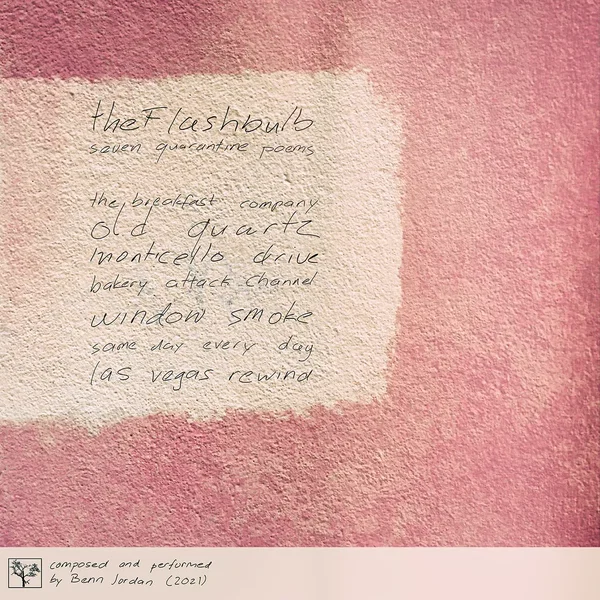 theFlashbulb
seven quarantine poems
the breakfast company
old quartz
monticello drive
bakery attack channel
window smoke
same day every day
las vegas rewind
composed and performed
by Benn Jordan (2021)